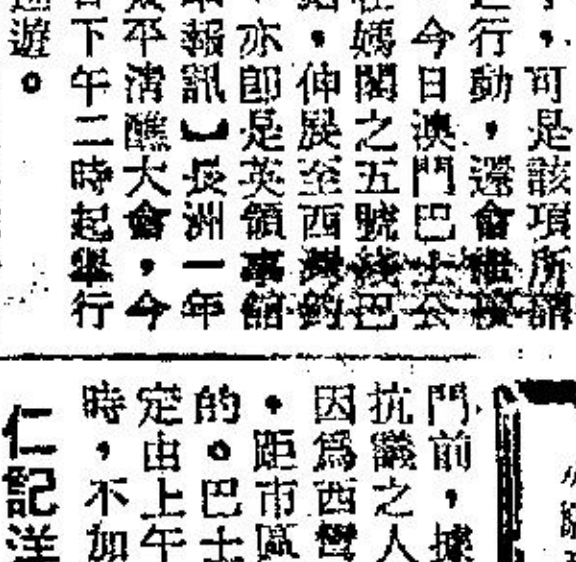 ，可是該項所謂
行動，還會繼續
今日澳門巴士公
媽閣之五號綫巴
，伸展至西灣的
亦卽是英領事館
報訊】長洲一年
平清醮大會，今
下午二時起舉行
遊。
門前，據
抗議之人
因爲西灣
，距市區
的。巴士
定由上午
時，不加
仁記洋